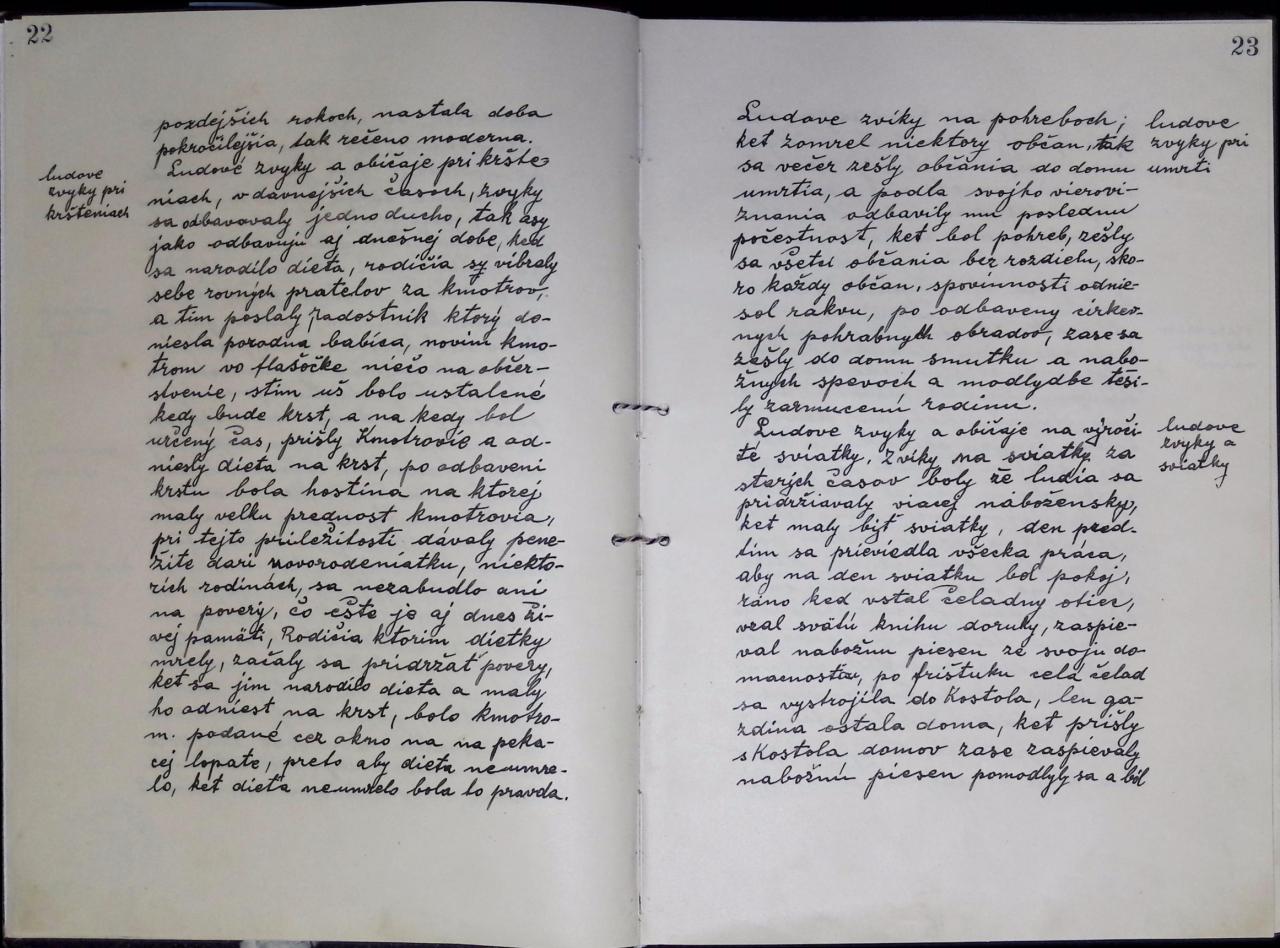 22
pozdejších rokoch, nastala doba
pokročilejšia, tak rečeno moderna.
ludove
zvyky pri
kršteniach
Ludové zvyky a običaje pri kršte-
niach, v dávnejších časoch, zvyky
sa odbavovaly jednoducho, tak asy
jako odbavujú aj dnešnej dobe, ked
sa narodilo dieta, rodičia sy vibraly
sebe rovných pratelov za kmotrov,
a tim poslaly radostnik ktorý do-
niesla porodna babica, novim kmo-
trom vo flašočke niečo na občer-
stvenie, stim uš bolo ustalené
kedy bude krst, a na kedy bol
určený čas, prišly Kmotrovie a od-
niesly dieta na krst, po odbaveni
krstu bola hostina na ktorej
maly velku prednost kmotrovia,
pri tejto priležitosti davaly pene-
žite dari novorodeniatku, niekto-
rich rodinách, sa nezabudlo ani
na povery, čo ešte je aj dnes ži-
vej pamäti, Rodičia ktorim dietky
mrely, začaly sa pridržať povery,
ket sa jim narodilo dieta a maly
ho odniest na krst, bolo kmotro-
m. podané cez okno na na peka-
cej lopate, preto aby dieta neumre-
lo, ket dieťa neumrelo bola to pravda.
23
Ludove zviky na pohreboch;
ludove
zvyky pri
umrti
ket zomrel niektory občan, tak
sa večer zešly občania do domu
umrtia, a podla svojho vierovi-
znania odbavily mu poslednu
počestnost, ket bol pohreb, zešly
sa všetci občania bez rozdielu, sko-
ro každy občan, spovinnosti odnie-
sol rakvu, po odbaveny cirkev-
nych pohrabnych obradov, zase sa
zešly do domu smutku a nabo-
žnych spevoch a modlydbe teši-
ly zarmucenú rodinu.
ludove
zvyky a
sviatky
Ludove zvyky a običaje na výroči-
té sviatky. Zviky na sviatky za
starých časov boly že ludia sa
pridržiavaly viacej nábožensky,
ket maly byť sviatky, den pred-
tim sa prieviedla všecka práca,
aby na den sviatku bol pokoj,
ráno ked vstal čeladny otiec,
vzal svätú knihu doruky, zaspie-
val nabožnu piesen ze svoju do-
macnostou, po frištuku celá čelad
sa vystrojila do Kostola, len ga-
zdina ostala doma, ket prišly
s Kostola domov zase zaspievaly
nabožnú piesen pomodlyly sa a bol